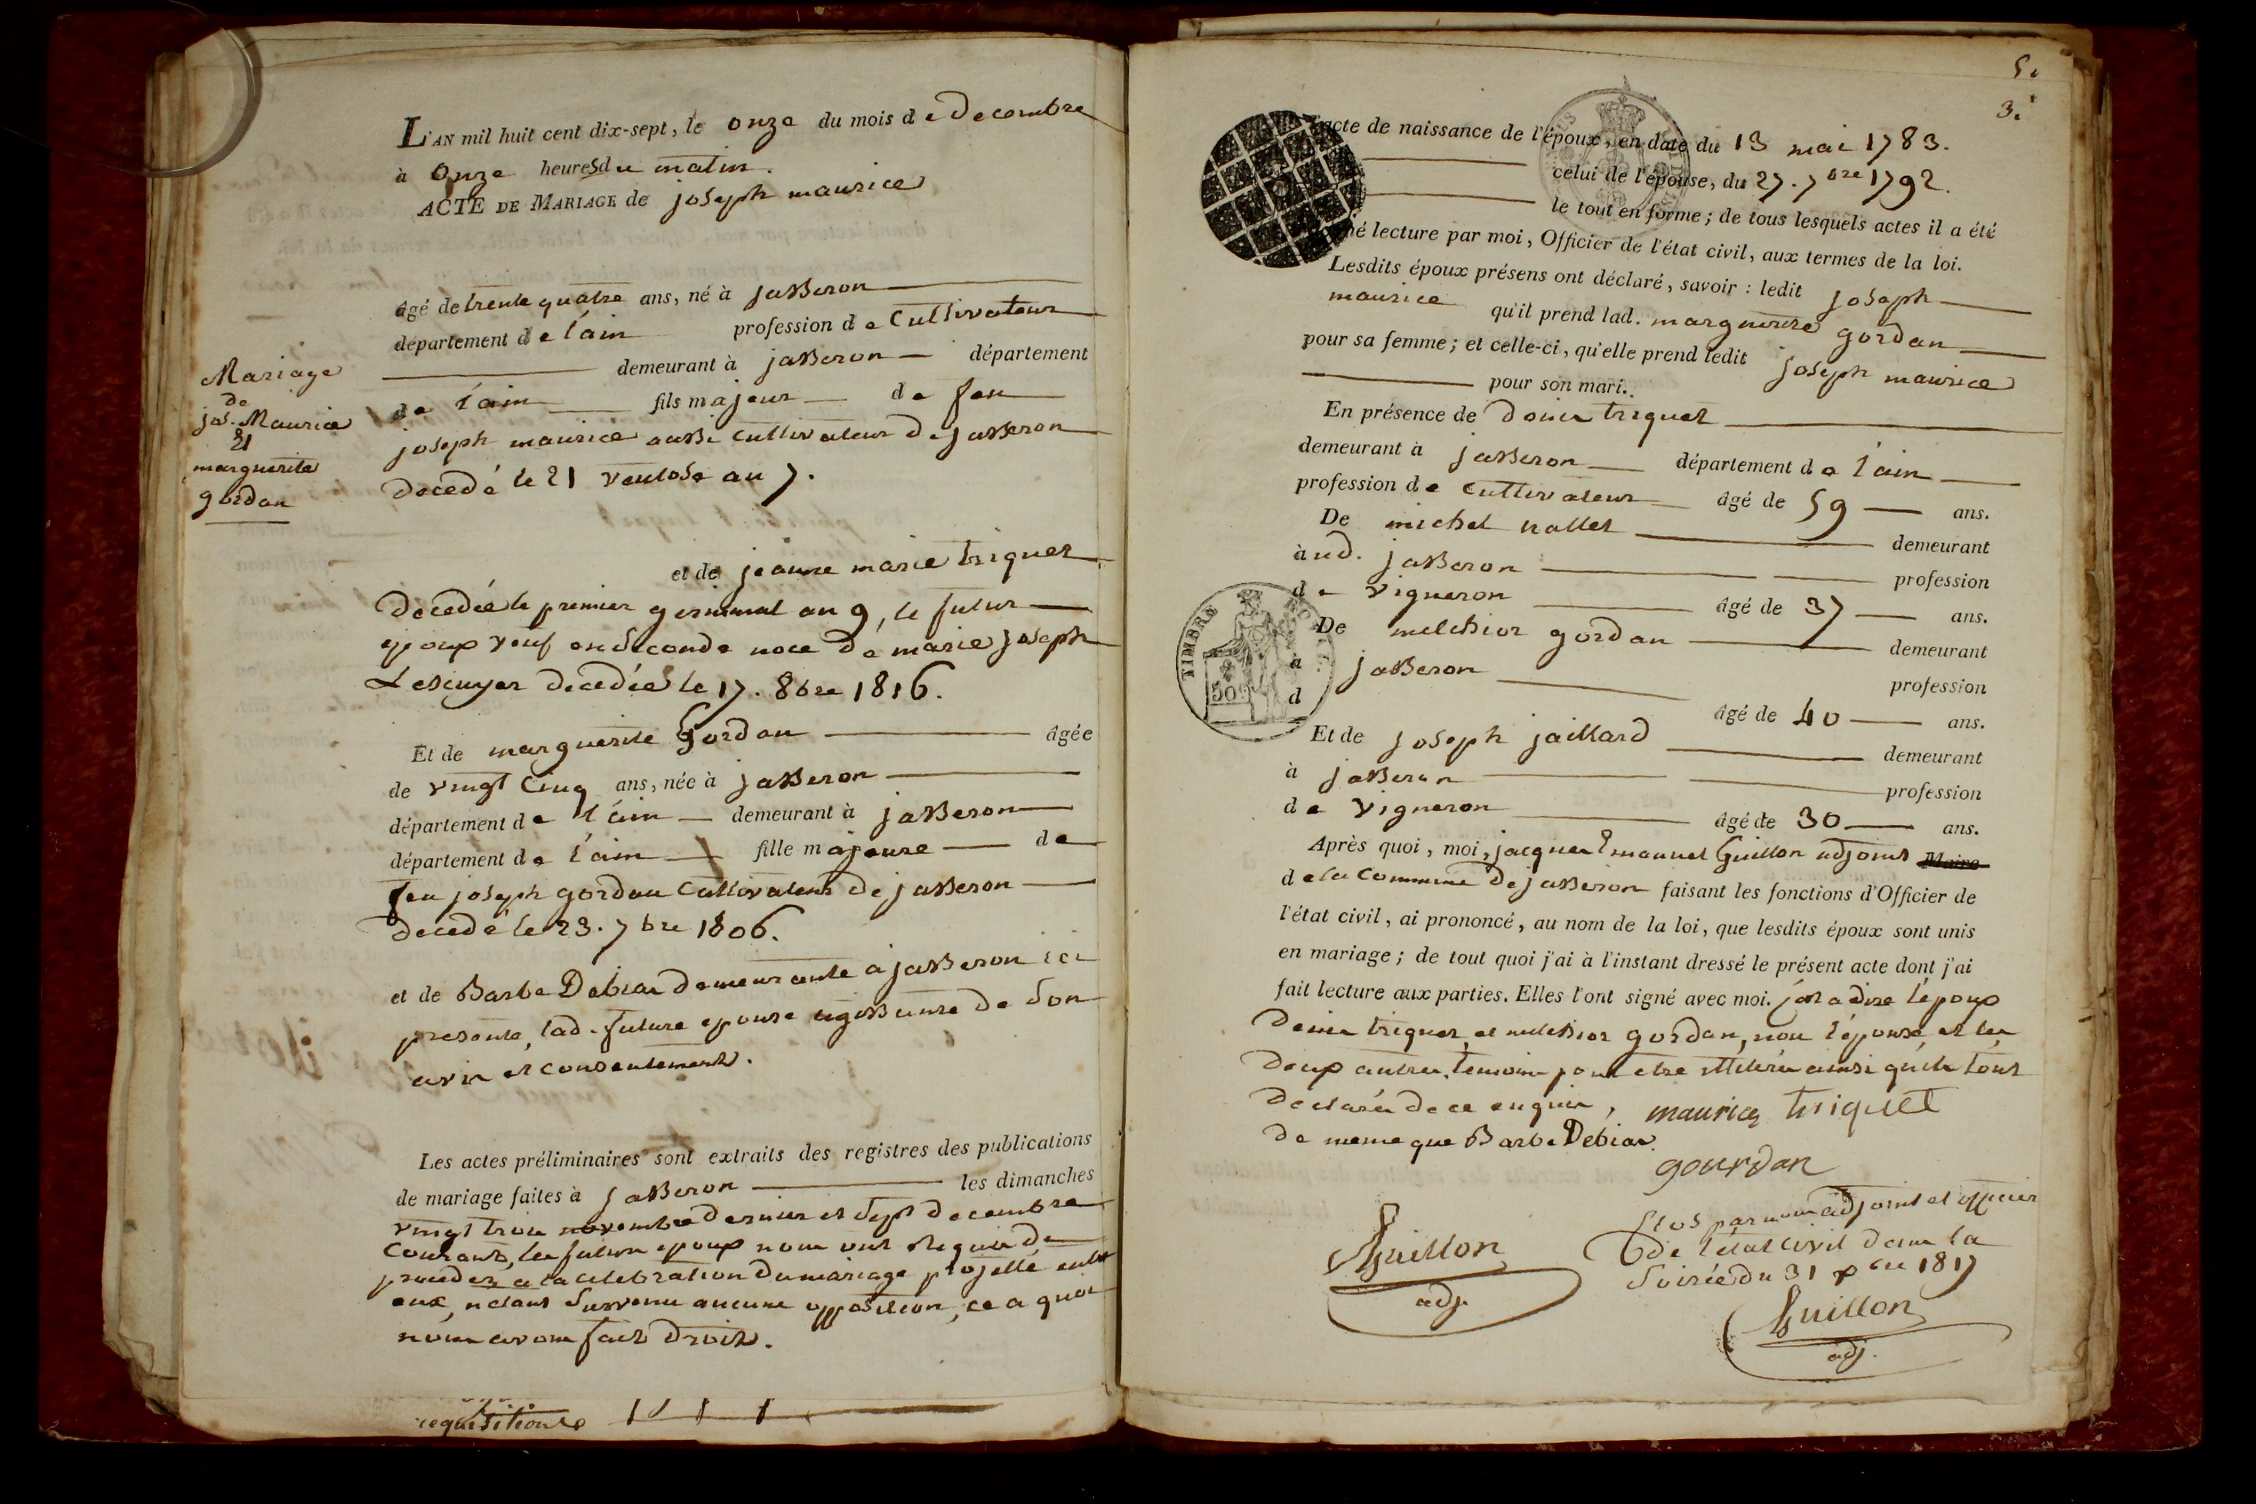 L'AN mil huit cent dix-sept, le onze du mois de decembre
à onze heures du matin.
ACTE DE MARIAGE de joseph maurice
âgé de trente quatre ans, né à jasseron
département de l'ain profession de Cultivateur
demeurant à jasseron département
de l'ain fils majeur de feu
joseph maurice aussi cultivateur de jasseron
decedé le 21 ventose an 7.
et de jeanne marie triquet
decedée le premier germinal an 9, le futur
epoux veuf en seconde noce de marie joseph
Lescuyer decedée le 17. 8bre 1816.
Et de marguerite Gordan âgée
de vingt cinq ans, née à jasseron
département de l'ain demeurant à jasseron
département de l'ain fille majeure de
feu joseph gordan Cultivateur de jasseron
decedé le 23. 7bre 1806.
et de Barbe Debias demeurante a jasseron ici
presente, lad. future epouse agissante de son
avis et consentement.
Les actes préliminaires sont extraits des registres des publications
de mariage faites à jasseron les dimanches
vingt trois novembre dernier et sept decembre
courant, les futurs epoux nous ont requis de
proceder a la celebration du mariage projetté entre
eux, n'etant survenu aucune opposition, ce a quoi
nous avons fait droit.
Mariage
de
jos. Maurice
Et
marguerite
gordan
requisitions
5.
3.
acte de naissance de l'époux, en date du 13 mai 1783.
celui de l'épouse, du 27. 7bre 1792.
le tout en forme; de tous lesquels actes il a été
né lecture par moi, Officier de l'état civil, aux termes de la loi.
Lesdits époux présens ont déclaré, savoir: ledit joseph
maurice qu'il prend lad. marguerite gordan
pour sa femme; et celle-ci, qu'elle prend ledit joseph maurice
pour son mari.
En présence de denis triquet
demeurant à jasseron département de l'ain
profession de cultivateur âgé de 59 ans.
De michel nallet demeurant
à ud. jasseron profession
de vigneron âgé de 37 ans.
De melchior gordan demeurant
à jasseron profession
d âgé de 40 ans.
Et de joseph jaillard demeurant
à jasseron profession
de vigneron âgé de 30 ans.
Après quoi, moi, jacques Emanuel Guillon adjoint Maire
de la Commune de jasseron faisant les fonctions d'Officier de
l'état civil, ai prononcé, au nom de la loi, que lesdits époux sont unis
en mariage; de tout quoi j'ai à l'instant dressé le présent acte dont j'ai
fait lecture aux parties. Elles l'ont signé avec moi. c'est a dire l'epoux
denis triquet, et melchior gordan, non l'épouse et les
deux autres temoins pour etre illiterés ainsi qu'ils l'ont
declaré de ce enquis,
de meme que Barbe Debias.
maurice triquet
gourdan
Guillon
adj.
Clos par nous adjoint et officier
de l'état civil dans la
soirée du 31 xbre 1817
Guillon
adj.
TIMBRE ROYAL
50c